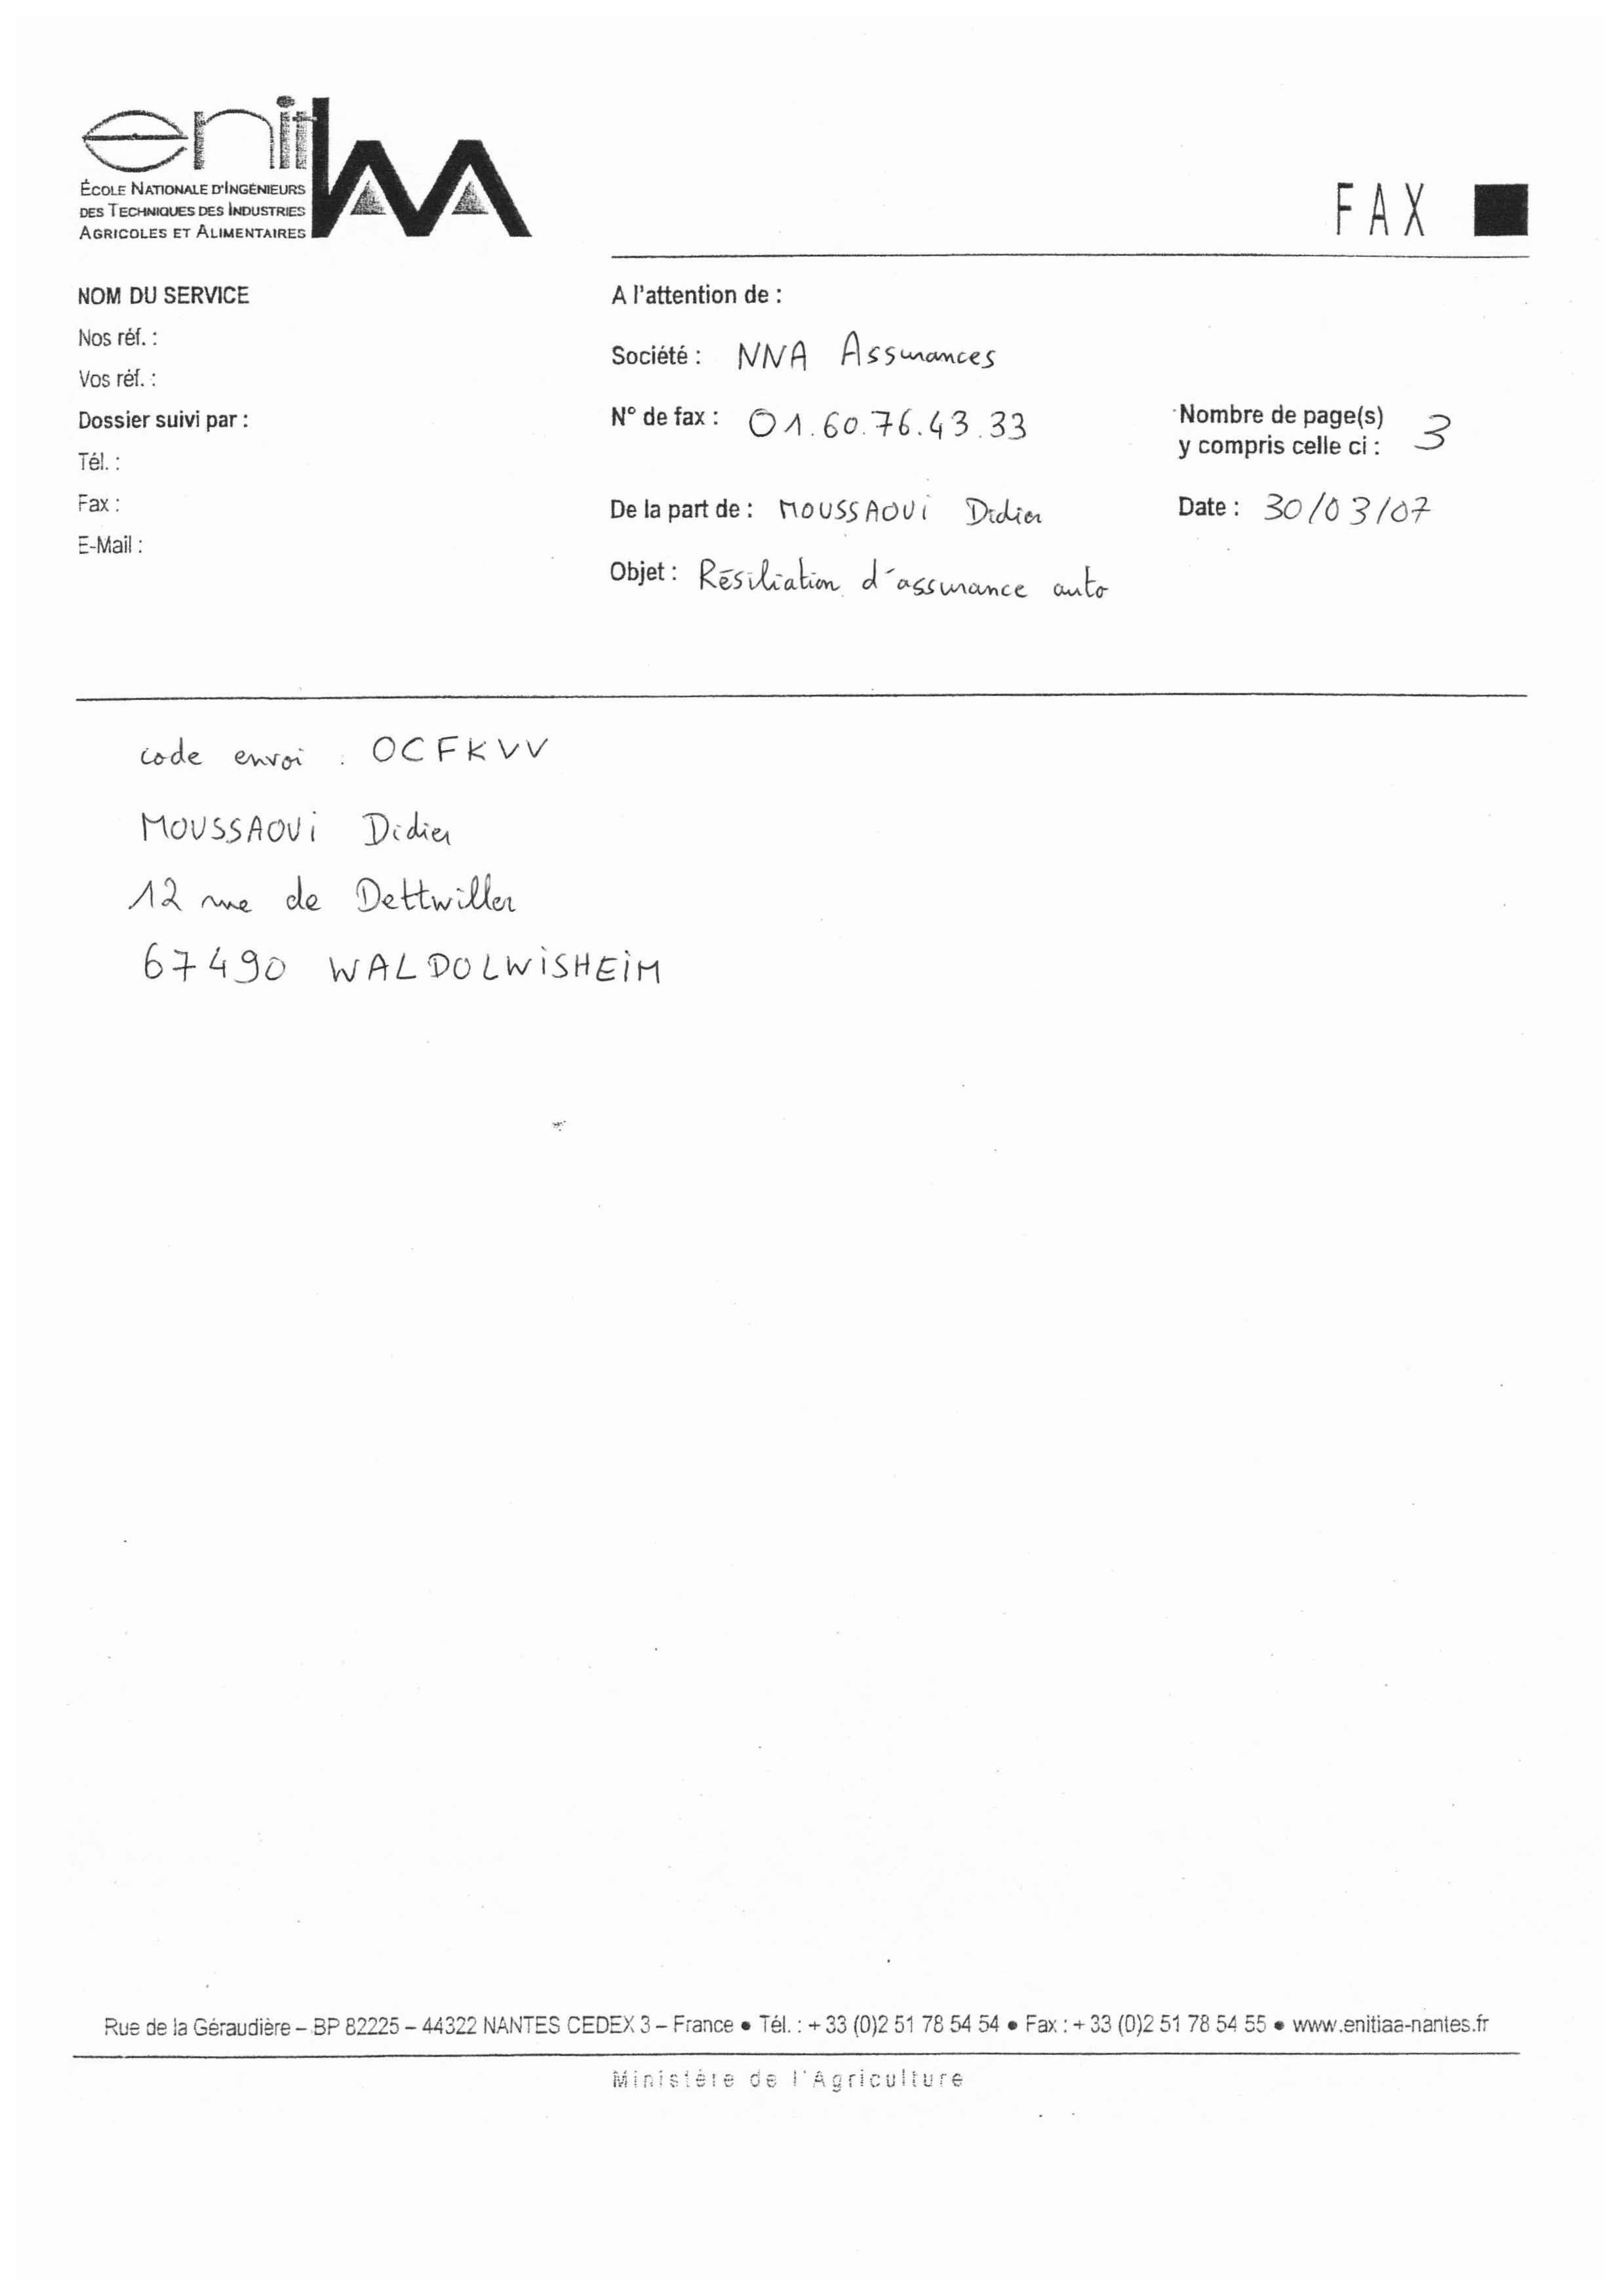 enitIAA
ÉCOLE NATIONALE D'INGÉNIEURS
DES TECHNIQUES DES INDUSTRIES
AGRICOLES ET ALIMENTAIRES
FAX
NOM DU SERVICE
Nos réf. :
Vos réf. :
Dossier suivi par :
Tél. :
Fax :
E-Mail :
A l'attention de :
Société : NNA Assurances
N° de fax : 01.60.76.43.33
Nombre de page(s)
y compris celle ci : 3
De la part de : MOUSSAOUi Didier
Date : 30/03/07
Objet : Résiliation d'assurance auto
code envoi : OCFKVV
MOUSSAOUi Didier
12 rue de Dettwiller
67490 WALDOLWiSHEiM
Rue de la Géraudière – BP 82225 – 44322 NANTES CEDEX 3 – France • Tél. : + 33 (0)2 51 78 54 54 • Fax : + 33 (0)2 51 78 54 55 • www.enitiaa-nantes.fr
Ministère de l'Agriculture